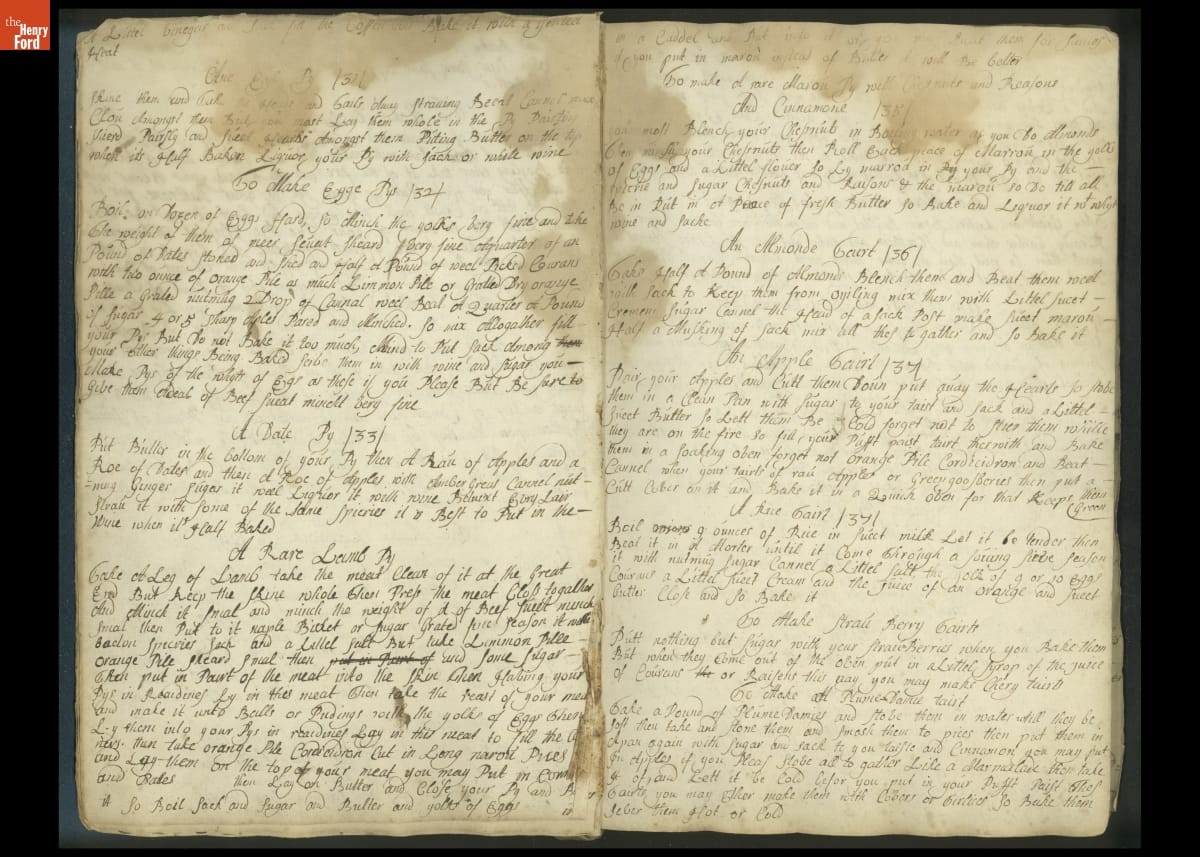 the
Henry
Ford
A Littel Vinegar and
Bake it, with a gentell
Heat
Pys 131
Skine them and Take the Heads and Tails away Strawing Beeat Cannel
Clou Amongst them But you most Lay them whole in the Py
Sliced Parsly and Amongst them Puting Butter on the top
when its Half Baken Liquor your Py with Sack or white wine
To Make Egge Pys 132
Boil on Dozen of Eggs Hard, so Minch the yolks very fine and take
the weight of them of Beef Seuit Sheard Very fine a quarter of an
Pound of Dates Stoned and Slied and Half a Pound of weel Picked Courans
with two ounce of orange Pile as much Limmon Pile or Grated Dry orange
Pille a Grated nutmug 2 Drop of Cannal weel Beat a Quarter of Pound
of Sugar 4 or 5 Sharp Aples Pared and Minched. So mix Altogather fill
your Pys But Do not Bake it too much, Mind to Put Sack Among
your other things Being Baked Serve them in with wine and Sugar you
Make Pys of the whits of Eggs as these if you Please But Be Sure to
Give them a deal of Beef Sueat minchd very fine
A Date Py 133
Put Butter in the bottom of your Py then A Rau of Apples and a
Roe of Dates and then a Roe of Apples with Amber Greus Cannel nut-
=mug Ginger Suger it weel Liquor it with wine Betwext Every Lair
Strau it with some of the Same Speceries it is Best to Put in the
Wine when it's Half Baked
A Rare Lamb Py
Take A Leg of Lamb take the meat Clean of it at the Great
End But Keep the Skine whole Then Press the meat Closs togather
and Minch it Smal and minch the weight of it of Beef Sueet minch
Smal then Put to it naple Bisket or Sugar Grated fine Season it with
Beaten Speceries Sack and a Littel Salt But take Limmon Pille
orange Pile Sheard Smal then put in Part of and some Sugar
Then put in Paurt of the meat into the Skin then Haveing your
Pys in Readiness Ly in this meat Then take the reast of your meat
and make it unto Balls or Pudings with the yolks of Eggs then
Ly them into your Pys in readiness Lay in this meat to fill the
then take orange Pile Cordecidron Cut in Long narou Pices
and Lay them on the top of your meat you may Put in Courans
and Dates then Lay on Butter and Close your Py and B
it So Boil Sack and Sugar and Butter and yolks of Eggs
in
in a Caddel and Put into it or you may Beat them for
if you put in marou instead of Butter it will Be better
To make a rare Marou Py with Chesnuts and Reasons
And Cinnamone 135
you most Blench your Chesnuts in Boiling water as you Do Almonds
then mash your Chesnuts then Roll Each peace of Marrou in the yolk
of Eggs and a Littel flouer So Ly marrou in your Py and the
spicerie and Sugar Chesnuts and Raisons & the marou so Do till all
Be in Put in a Peace of fresh Butter So Bake and Liquor it wt whyt
wine and Sacke
An Almonde Tairt 136
Take Half a Pound of Almonds Blench them and Beat them weel
with Sack to Keep them from oyiling mix them with Littel sueet
Cremem Sugar Cannel the Head of a Sack Post make Sueet marou
Half a Musking of Sack mix all thes to gather and so Bake it
An Apple Tairt 137
Pair your Apples and Cutt them Doun put away the Hearts So stobe
them in a Clean Pan with Sugar to your taist and Sack and a Littel
Sueet Butter So Lett them Be Cold forget not to Steer them while
they are on the fire so fill your Puft past tairt therwith and Bake
them in a Soaking oben forget not Orange Pile Cordecidron and Beat
Cannel when your tairts of rau Apples or Greengoosberies then put a
Cutt Cober on it and Bake it in a Quick oben for that Keeps them
Green
A Rice Tairt 137
Boil 9 ounces of Rice in Sueet milk Let it be tender then
Beat it in A Morter until it Come through a Searing Siebe Season
it with nutmug Sugar Cannel a Littel Salt, the yolk of 9 or 10 Eggs
Courans a Littel Sueet Cream and the Juice of an orange and Sueet
Butter Close and So Bake it
To Make Strau Berry Tairts
Putt nothing but Sugar with your Strauberries when you Bake them
But when they Come out of the oben put in a Littel Syrop of the juice
of Courans the or Raisens this way you may make Chery tairts
To Make A Plume Damie taist
Take a Pound of Plume Damies and Stobe them in water till they be
Soft then take and Stone them and Smash them to pices then put them in
a pan again with Sugar and Sack to you taiste and Cinnamon you may put
in Apples if you Pleas Stobe all to gather Like a Marmalade then take
it of and Lett it be Cold befor you put in your Pufft Paist thes
Tairts you may Ether make them with Cobers or Girtiles So Bake them
Seber them Hot or Cold